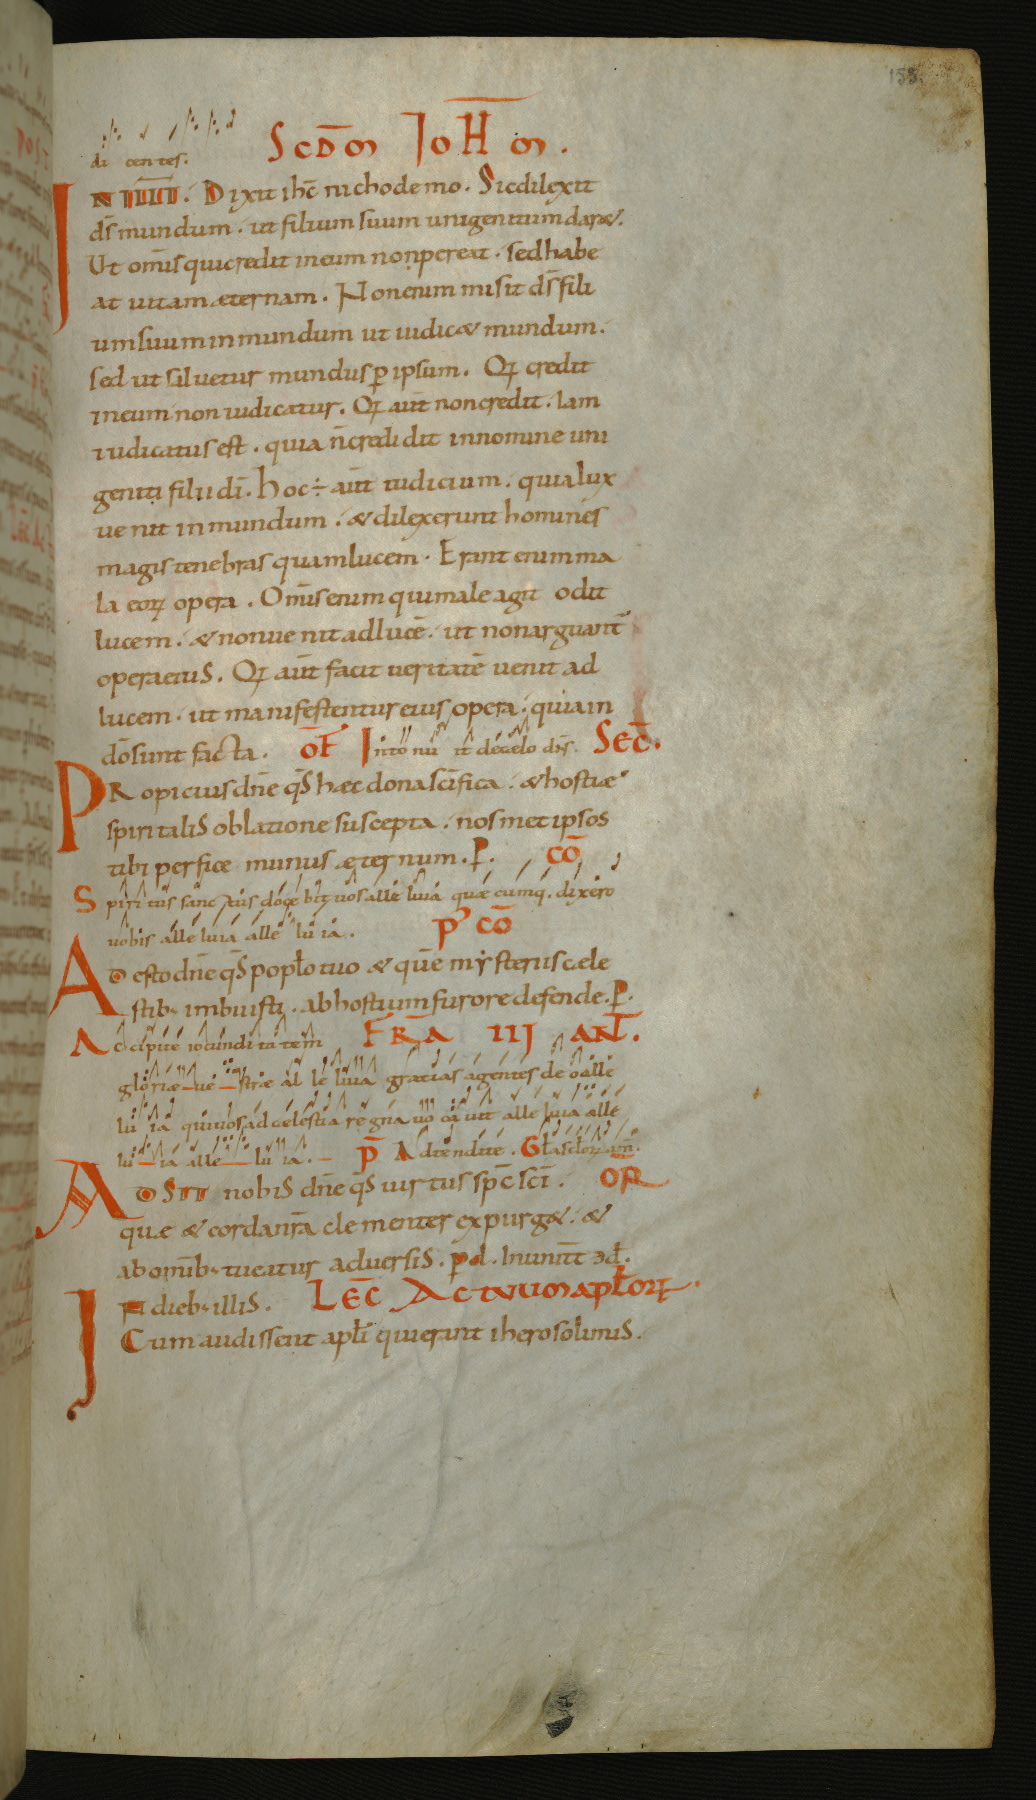 155
di centes. ScDm IoHm.
IN IIII. Dixit ihc̄ nichodemo. Sic dilexit
d̄s mundum. ut filium suum unigenitum dar&.
Ut om̄is qui credit in eum non pereat. sed habe
at uitam æternam. Non enim misit d̄s fili
um suum in mundum ut iudic& mundum.
sed ut saluetur mundus p̄ ipsum. Qꝫ credit
in eum non iudicatur. Qꝫ aut̄ non credit. Iam
iudicatus est. quia n̄ credidit in nomine uni
geniti filii dī. hoc ÷ aut̄ iudicium. quia lux
uenit in mundum. & dilexerunt homines
magis tenebras quam lucem. Erant enim ma
la eoꝝ opera. Om̄is enim qui male agit odit
lucem. & non uenit ad lucē. ut non arguant̄
opera eius. Qꝫ aut̄ facit ueritatē uenit ad
lucem. ut manifestentur eius opera. quia in
dō sunt facta. oF̄ Intonuit de celo dn̄s. Sec̄.
PRopicius dn̄e qs̄ hæc dona sc̄ifica. & hostiæ
spiritalis oblatione suscepta. nosmet ipsos
tibi perfice munus æternum. P. cō
Spiritus sanctus docebit uos alleluia quæcumq. dixero
uobis alleluia alleluia. p' cō
ADesto dn̄e qs̄ pop̄lo tuo & quē mysteriis cæle
stib; imbuisti. ab hostium furore defende. P.
Accipite iocunditatem FR̄A III AN̄T.
gloriæ uestræ alleluia gratias agentes deo alle
luia qui uos ad celestia regna uocauit alleluia alle
luia alleluia. p̄ Adtendite. Gl̄a sc̄loꝝ am̄.
ADSIT nobis dn̄e qs̄ uirtus sp̄c sc̄i. OR
quæ & corda nr̄a clementer expurg&. &
ab om̄ib; tueatur aduersis. p d. In unit̄ ꝫd.
IN dieb; illis. Lec̄ Actuum apl̄oꝝ.
Cum audissent apl̄i qui erant iherosolimis.